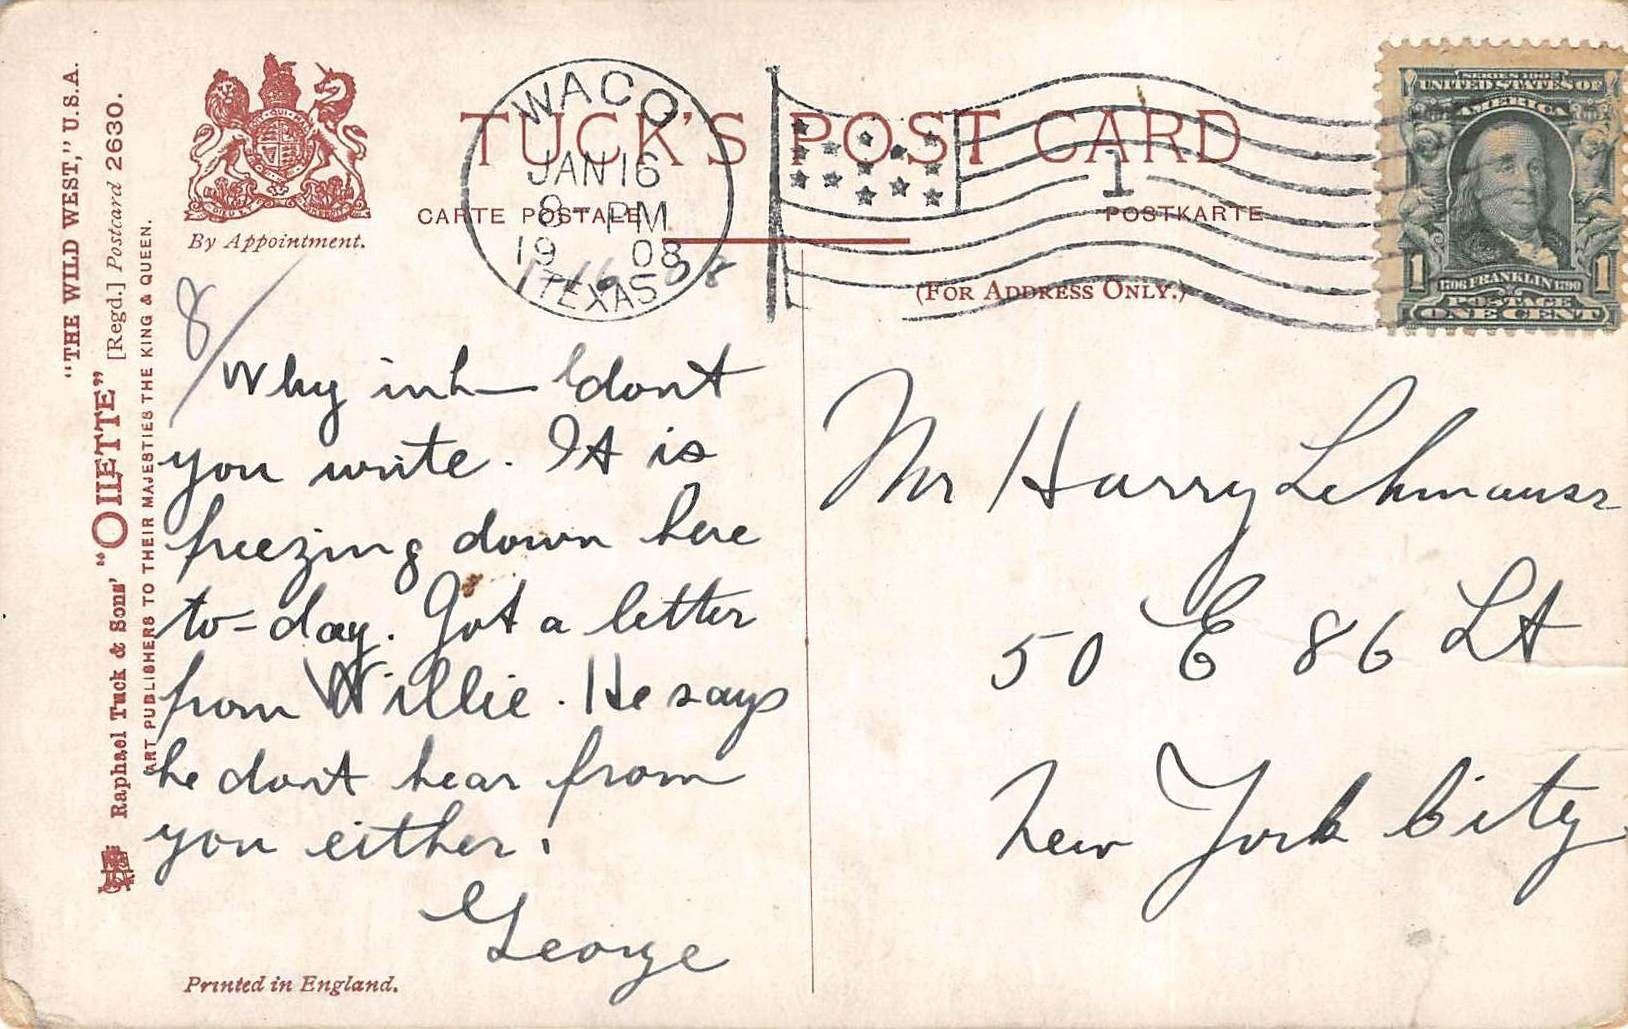 "THE WILD WEST," U.S.A.
Raphael Tuck & Sons' "OILETTE" [Regd.] Postcard 2630.
ART PUBLISHERS TO THEIR MAJESTIES THE KING & QUEEN.
By Appointment.
TUCK'S POST CARD
CARTE POSTALE POSTKARTE
(FOR ADDRESS ONLY.)
WACO
JAN 16
8 - PM
1908
TEXAS
1
SERIES 1902
UNITED STATES OF
AMERICA
1 1
1706 FRANKLIN 1790
POSTAGE
ONE CENT
1 16 08
8/
Why in h— dont
you write. It is
freezing down here
to-day. Got a letter
from Willie. He says
he dont hear from
you either!
George
Mr Harry
50 E 86 St
New York City
Printed in England.